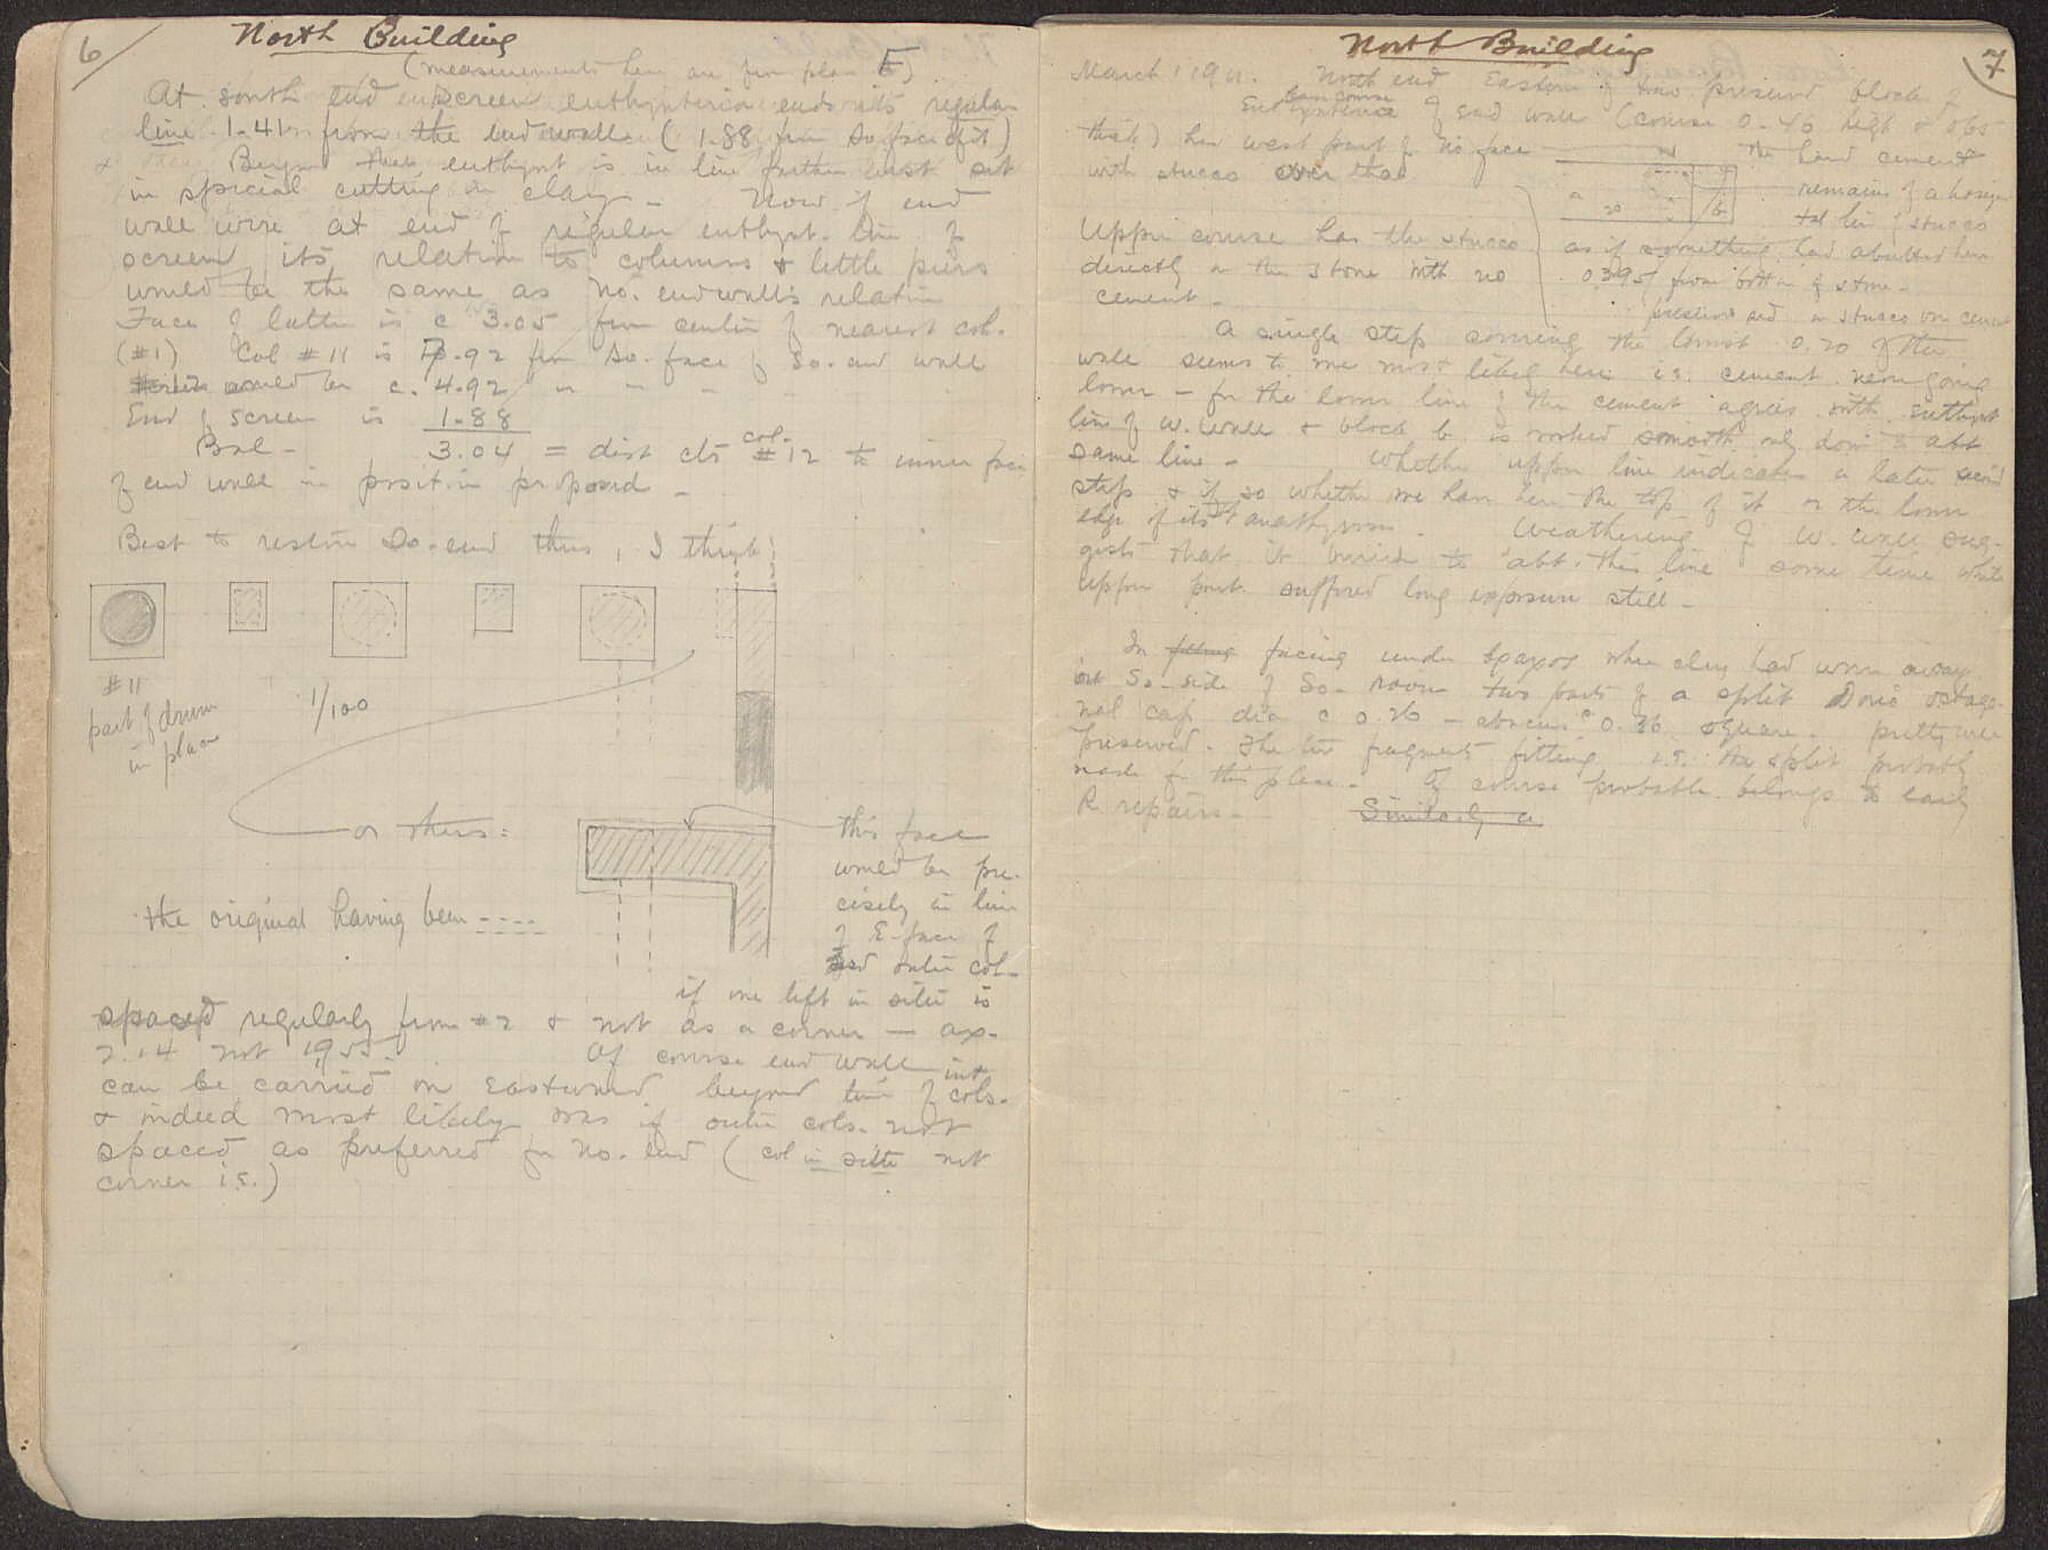 6
North Building
(measurements here are from plan E)
At south end screen euthynteria ends its regular
line 1.41 from the end wall (1.88 from So. face of it)
& Beyond that euthynt is in line farther east set
in special cutting in clay - Now if end
wall were at end of regular euthynt. line of
screen its relation to columns & little piers
would be the same as No. end wall's relation
Face of latter is c 3.05 from center of nearest col.
(#1) Col #11 is 7.92 from So. face of So. end wall
#12 would be c. 4.92 " - - -
End of screen is 1.88
Bal - 3.04 = dist ctr col. #12 to inner face
of end wall in position proposed -
Best to restore So. end thus, I think:
#11
part of drum
in place
1/100
or thus:
this face
would be pre-
cisely in line
of E-face of
outer col-
the original having been ----
if one left in situ is
spaced regularly from #2 & not as a corner - ax.
2.14 not 1955.
Of course end wall
can be carried on eastward beyond line of int cols.
& indeed most likely was if outer cols. not
spaced as preferred for No. end (col in situ not
corner i.e.)
7
North Building
March 1 1911. North end Eastern of two present blocks of
base course
Euthynteria of end wall (course 0.46 high &
thick) has west part of No face
with stucco over that
The hard cement
a
b
remains of a horizon-
tal line of stucco
Upper course has the stucco
directly on the stone with no
cement -
as if something had abutted here
0.395 from bottom of stone -
preserved in stucco on cement
A single step covering the lowest 0.20 of the
wall seems to me most likely here i.e. cement never going
lower - for the lower line of the cement agrees with euthynt
line of W. wall & block b is worked smooth only down to abt
same line - Whether upper line indicates a later second
step & if so whether we have here the top of it or the lower
edge of its anathyrosis. Weathering of W. wall sug-
gests that it buried to abt. this line some time while
upper part suffered long exposure still -
In filling facing under βραχος where clay had worn away
at So-side of So-room two parts of a split Doric octago-
nal cap dia c 0.26 - abacus c 0.36 square. pretty well
preserved. The two fragments fitting i.e. the split probably
made for this place. Of course probable belongs to early
R. repairs. Similarly a